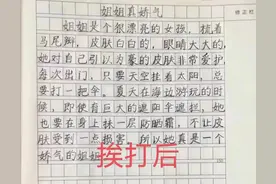 姐姐真娇气
姐姐是个很漂亮的女孩，梳着
马尾辫，皮肤白白的，眼睛大大的。
她对自己引以为豪的皮肤非常爱护
每次出门，只要天空挂着太阳，总
要打一把伞。夏天在海边游玩的时
候，即使有巨大的遮阳伞遮拦，她
也要在身上抹一层防晒霜，不让皮
肤受到一点损害。所以她真是一个
娇气的姐姐
挨打后